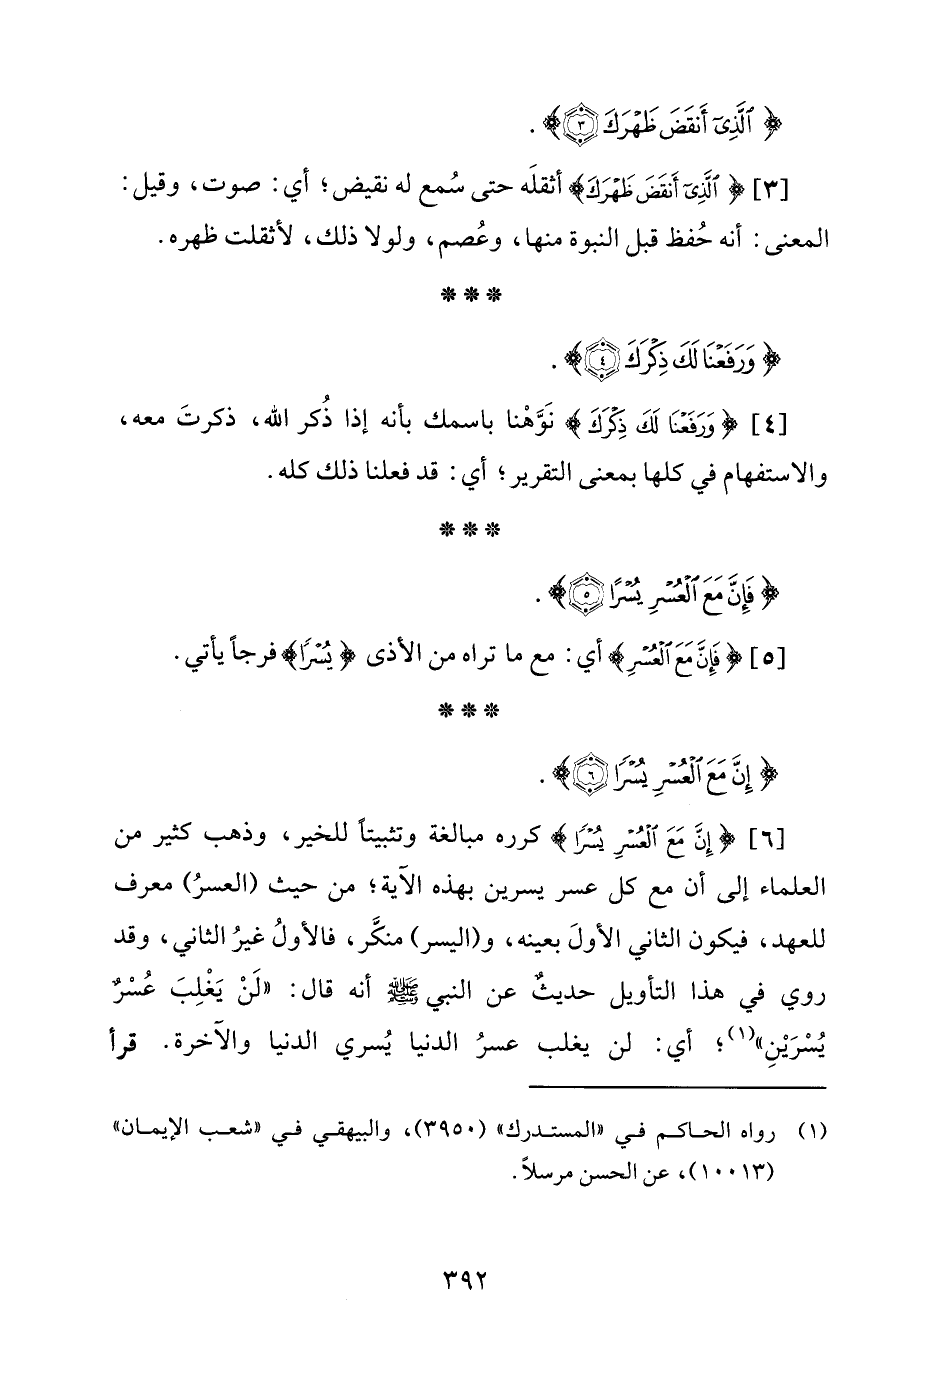 ﴿ ٱلَّذِىٓ أَنقَضَ ظَهْرَكَ ٣ ﴾ .
[٣] ﴿ ٱلَّذِىٓ أَنقَضَ ظَهْرَكَ ﴾ أثقلَه حتى سُمع له نقيض؛ أي: صوت، وقيل:
المعنى: أنه حُفظ قبل النبوة منها، وعُصم، ولولا ذلك، لأثقلت ظهره.
* * *
﴿ وَرَفَعْنَا لَكَ ذِكْرَكَ ٤ ﴾ .
[٤] ﴿ وَرَفَعْنَا لَكَ ذِكْرَكَ ﴾ نَوَّهْنا باسمك بأنه إذا ذُكر الله، ذكرتَ معه،
والاستفهام في كلها بمعنى التقرير؛ أي: قد فعلنا ذلك كله.
* * *
﴿ فَإِنَّ مَعَ ٱلْعُسْرِ يُسْرًا ٥ ﴾ .
[٥] ﴿ فَإِنَّ مَعَ ٱلْعُسْرِ ﴾ أي: مع ما تراه من الأذى ﴿ يُسْرًا ﴾ فرجاً يأتي.
* * *
﴿ إِنَّ مَعَ ٱلْعُسْرِ يُسْرًا ٦ ﴾ .
[٦] ﴿ إِنَّ مَعَ ٱلْعُسْرِ يُسْرًا ﴾ كرره مبالغة وتثبيتاً للخير، وذهب كثير من
العلماء إلى أن مع كل عسر يسرين بهذه الآية؛ من حيث (العسرُ) معرف
للعهد، فيكون الثاني الأولَ بعينه، و(اليسر) منكَّر، فالأولُ غيرُ الثاني، وقد
روي في هذا التأويل حديثٌ عن النبي ﷺ أنه قال: «لَنْ يَغْلِبَ عُسْرٌ
يُسْرَيْنِ»(١)؛ أي: لن يغلب عسرُ الدنيا يُسري الدنيا والآخرة. قرأ
(١) رواه الحاكم في «المستدرك» (٣٩٥٠)، والبيهقي في «شعب الإيمان»
(١٠٠١٣)، عن الحسن مرسلاً.
٣٩٢